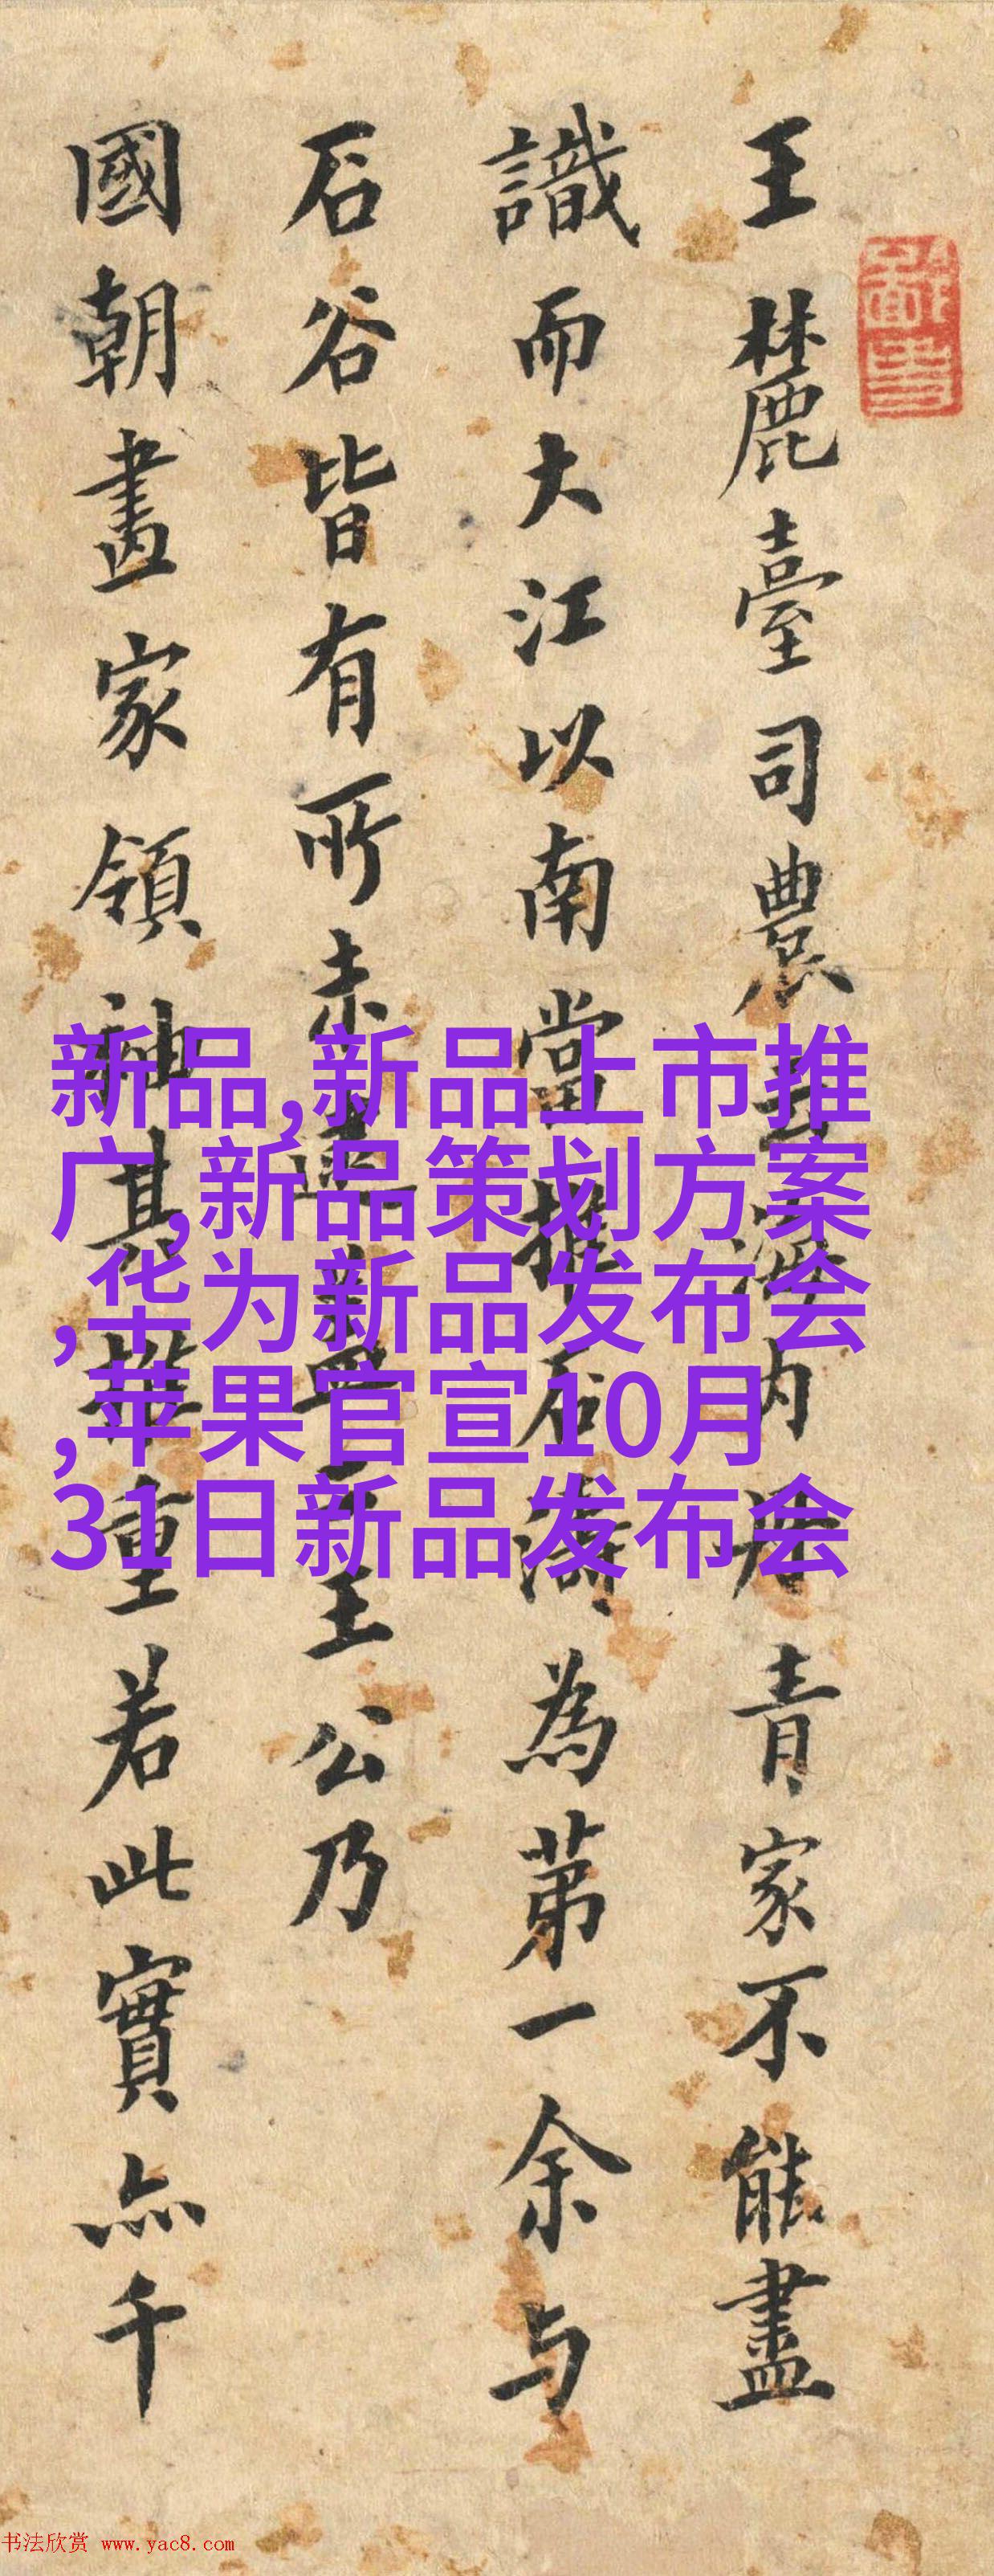 王麓臺司農云海内丹青家不能盡
識而大江以南當推石濤為第一余与
石谷皆有所未逮 王公乃
國朝畫家領袖其推重若此實亦千
新品,新品上市推
广,新品策划方案
,华为新品发布会
,苹果官宣10月
31日新品发布会
书法欣赏 www.yac8.com